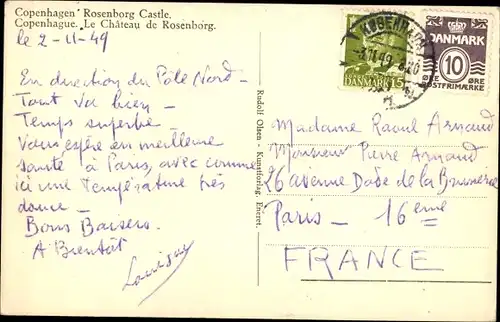 Copenhagen Rosenborg Castle.
Copenhague. Le Château de Rosenborg.
le 2-11-49
En direction du Pôle Nord -
Tout va bien -
Temps superbe
Vous espère en meilleure
santé à Paris, avec comme
ici une Température très
douce -
Bons Baisers.
A Bientôt
Rudolf Olsen - Kunstforlag. Eneret.
KØBENHAVN
DANMARK 15
DANMARK
ØRE 10 ØRE
POSTFRIMÆRKE
Madame Raoul Arnaud
Monsieur Pierre Arnaud
26 avenue Dode de la Brunerie
Paris - 16ème
FRANCE